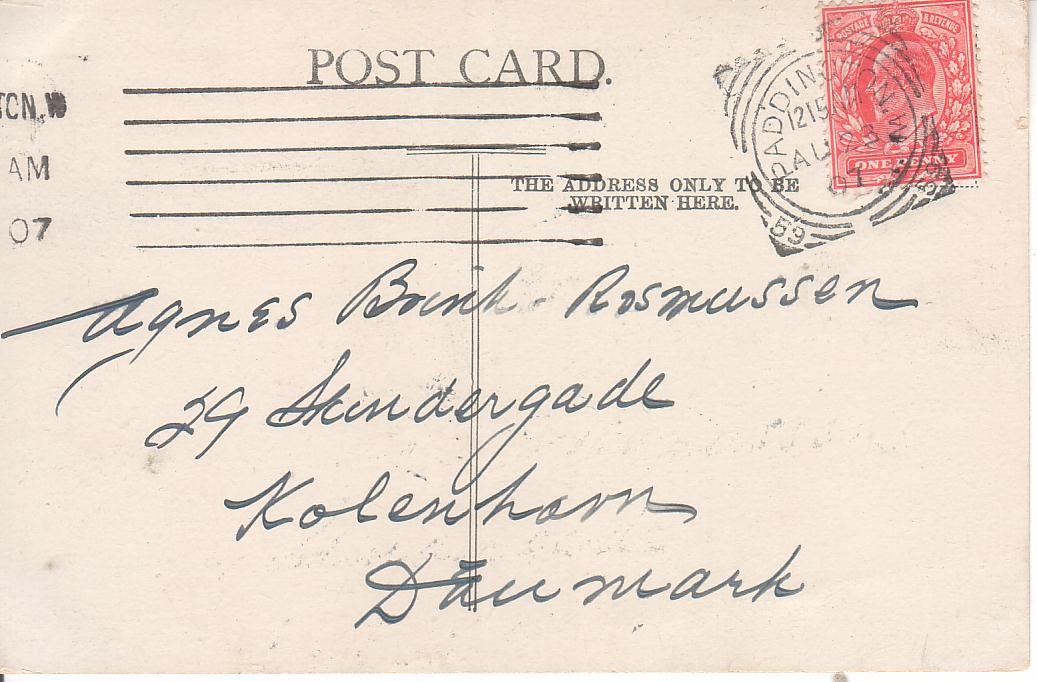 POST CARD.
TCN.W
AM
07
THE ADDRESS ONLY TO BE
WRITTEN HERE.
POSTAGE & REVENUE
ONE PENNY
PADDINGTON
1215
AU
07
59
Agnes Rosmussen
29 Skindergade
Kobenhavn
Danmark